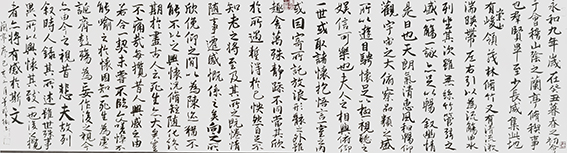 永和九年歲在癸丑暮春之初會
于會稽山陰之蘭亭脩稧事
也羣賢畢至少長咸集此地
有崇山峻領茂林脩竹又有清流激
湍暎帶左右引以為流觴曲水
列坐其次雖無絲竹管弦之
盛一觴一詠亦足以暢叙幽情
是日也天朗氣清惠風和暢仰
觀宇宙之大俯察品類之盛
所以遊目騁懷足以極視聽之
娛信可樂也夫人之相與俯仰
一世或取諸懷抱悟言一室之內
或因寄所託放浪形骸之外雖
趣舍萬殊靜躁不同當其欣
於所遇暫得於己怏然自足不
知老之將至及其所之既惓情
隨事遷感慨係之矣向之所
欣俛仰之間以為陳迹猶不
能不以之興懷況脩短隨化終
期於盡古人云死生亦大矣豈
不痛哉每攬昔人興感之由
若合一契未嘗不臨文嗟悼不
能喻之於懷固知一死生為虛
誕齊彭殤為妄作後之視今
亦由今之視昔悲夫故列
叙時人錄其所述雖世殊事
異所以興懷其致一也後之攬
者亦將有感於斯文